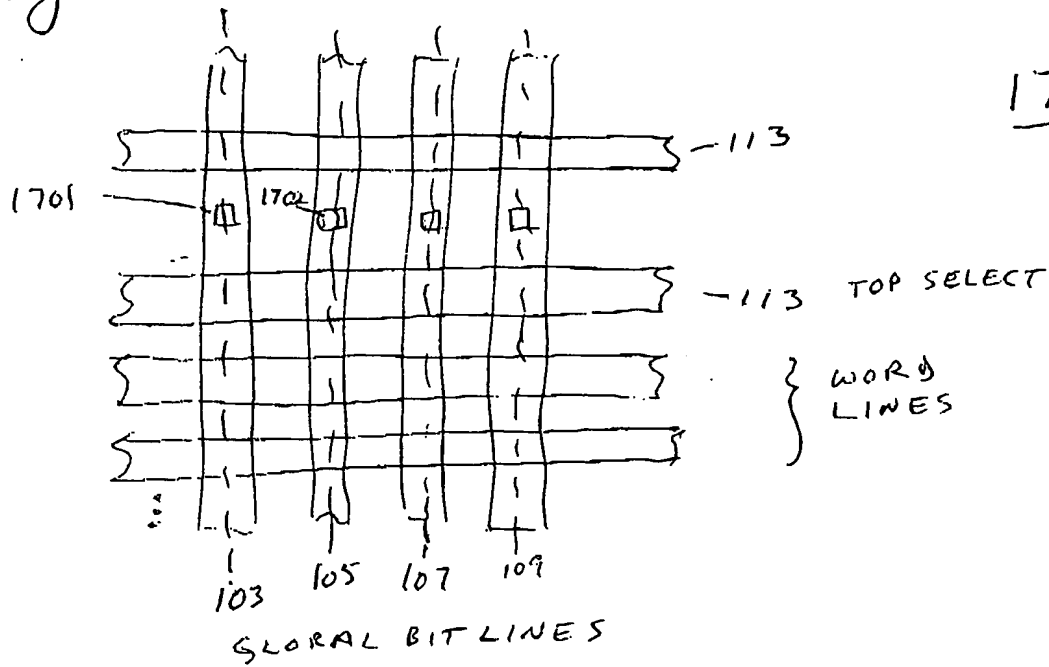 113
1701
1702
113 TOP SELECT
WORD
LINES
103
105
107
109
GLOBAL BIT LINES